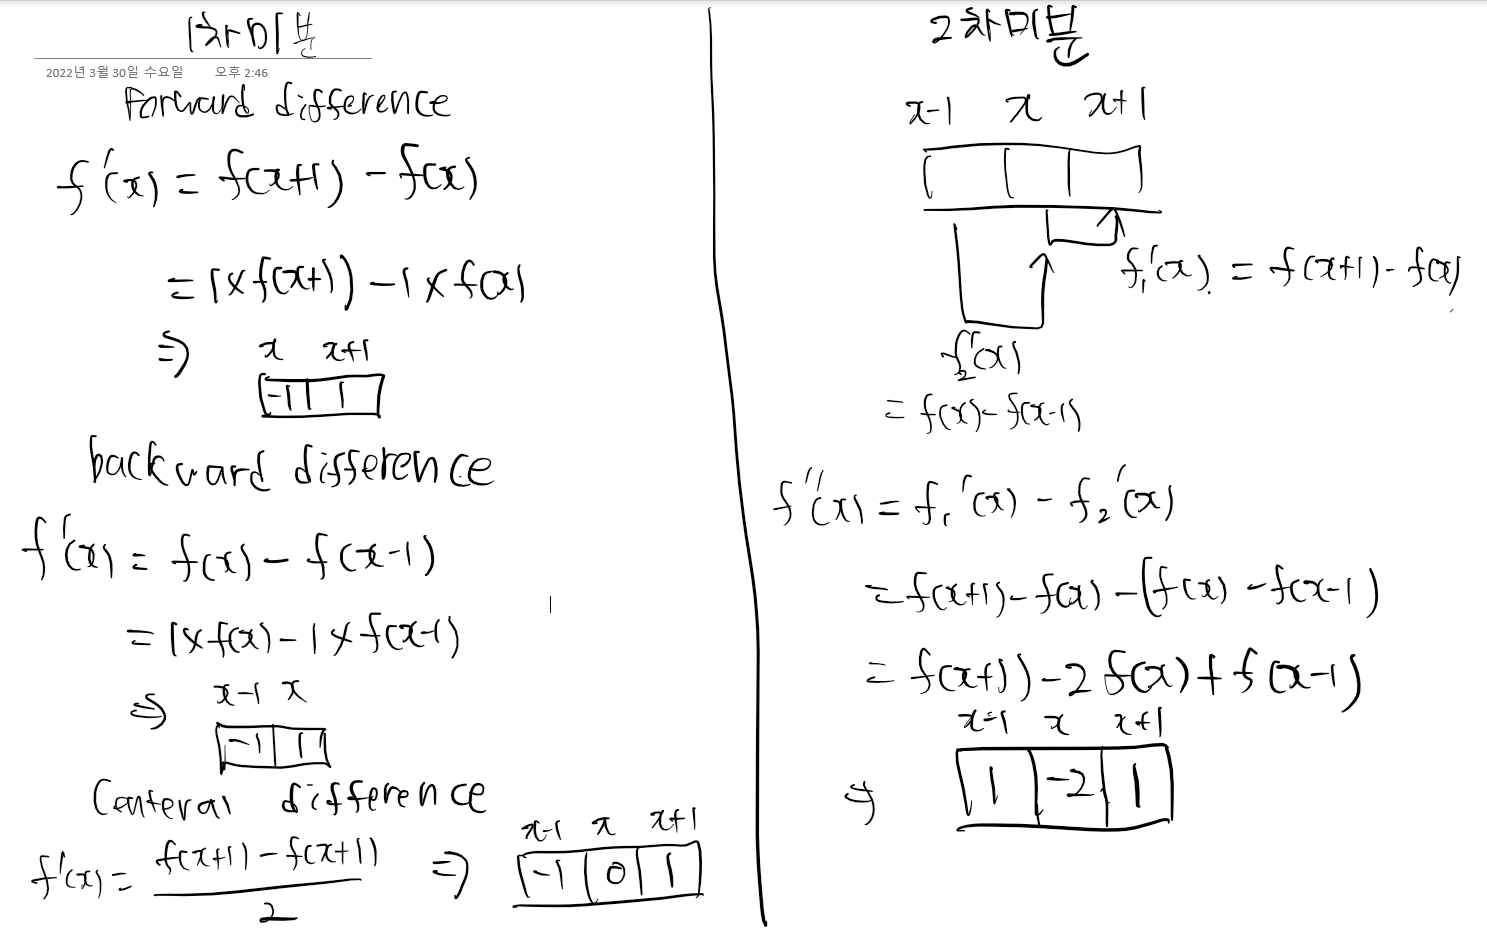 1차미분
2022년 3월 30일 수요일 오후 2:46
Forward difference
f'(x) = f(x+1) - f(x)
= 1×f(x+1) - 1×f(x)
⇒ x x+1
-1 1
backward difference
f'(x) = f(x) - f(x-1)
= 1×f(x) - 1×f(x-1)
⇒ x-1 x
-1 1
Centeral difference
f'(x) = f(x+1) - f(x+1) / 2 ⇒ x-1 x x+1
-1 0 1
2차미분
x-1 x x+1
f₁'(x) = f(x+1) - f(x)
f₂'(x)
= f(x) - f(x-1)
f''(x) = f₁'(x) - f₂'(x)
= f(x+1) - f(x) - (f(x) - f(x-1)
= f(x+1) - 2f(x) + f(x-1)
x-1 x x+1
⇒ 1 -2 1